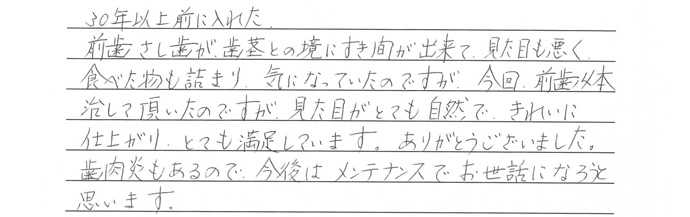 30年以上前に入れた、
前歯さし歯が、歯茎との境にすき間が出来て、見た目も悪く、
食べた物も詰まり、気になっていたのですが、今回、前歯4本
治して頂いたのですが、見た目がとても自然で、きれいに
仕上がり、とても満足しています。ありがとうございました。
歯肉炎もあるので、今後はメンテナンスでお世話になろうと
思います。